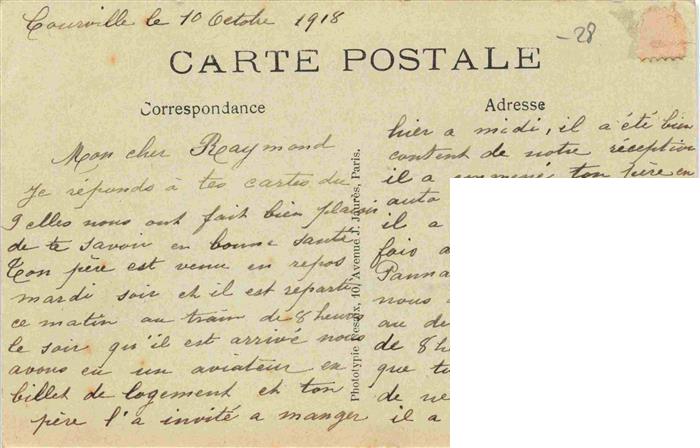 Courville le 10 Octobre 1918
-28
CARTE POSTALE
Correspondance
Adresse
Mon cher Raymond
Je réponds à tes cartes du
9 elles nous ont fait bien plaisir
de te savoir en bonne santé
Ton père est venu en repos
mardi soir et il est reparti
ce matin au train de 8 heures
le soir qu'il est arrivé nous
avons eu un aviateur en
billet de logement et ton
père l'a invité a manger
hier a midi, il a été bien
content de notre réception
il a emmené ton père en
auto
il a
fois a
Panna
nous
au de
de 8 h
que tu
de ne
il a
Phototypie Desaix, 10, Avenue J. Jaurès, Paris.